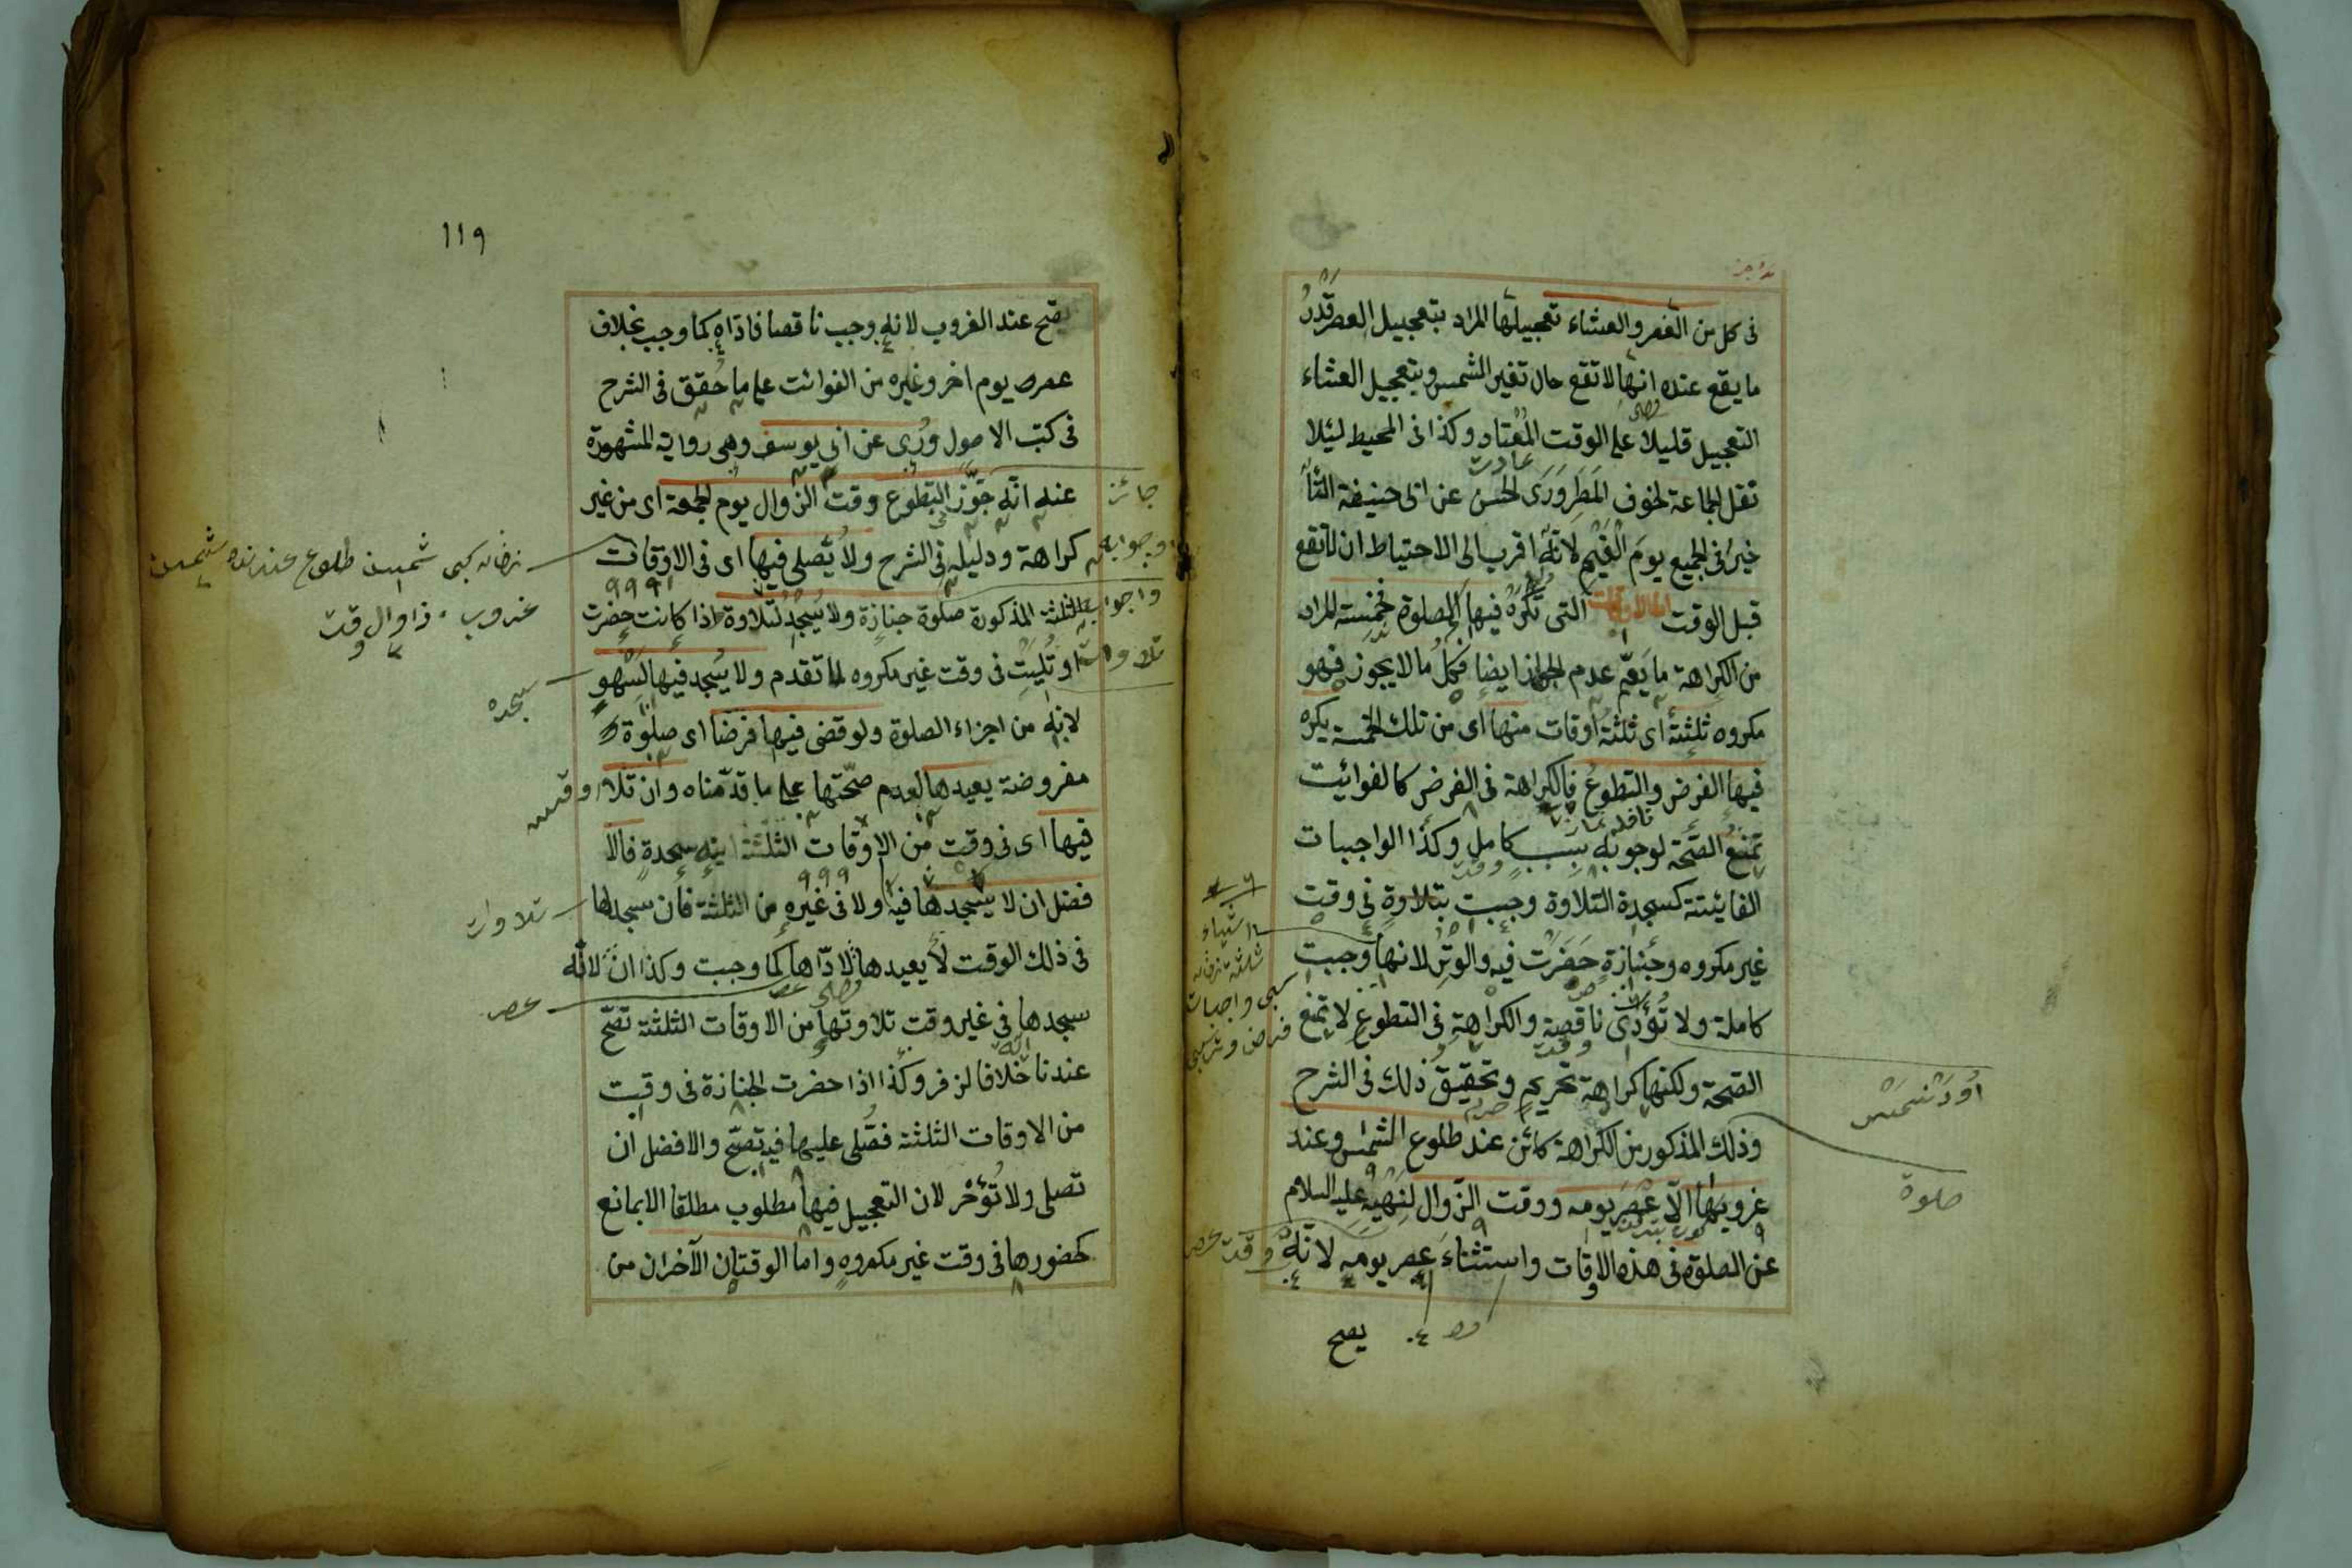 فى كل من العصر والعشاء تعجيلها المراد بتعجيل العصر قَدْرُ
ما يقع عنده انها لا تقع حال تغير الشمس وبتعجيل العشاء
التعجيل قليلا على الوقت المُعْتاد وكذا فى المحيط لئلا
تقل الجماعة لخوف المَطَرِ وَرَوَى الحسن عن ابى حنيفة التأ
خير فى الجميع يومَ الغَيْمِ لانه اقرب الى الاحتياط ان لا تقع
قبل الوقت اما الاوقات التى تُكْرَهُ فيها الصلوة فخمسة المراد
من الكراهة ما يَعُمّ عدم الجواز ايضا فَكلُّ ما لا يجوز فهو
مكروه ثلثةٌ اى ثلثة اوقات منها اى من تلك الخمسة يكره
فيها الفرض والتطوعُ فالكراهة فى الفرض كالفوائت
تمنعُ الصّحة لوجوبه بسبب كامل وكذا الواجبات
الفائتة كسجدة التلاوة وجبت بتلاوةٍ فى وقت
غير مكروه وجنازةٍ حَضَرَت فيه والوتر لانها وجبت
كاملة ولا تُؤَدَّى ناقصةً والكراهة فى التطوع لا تمنع
الصّحة ولكنها كراهة تحريمٍ وتحقيق ذلك فى الشرح
وذلك المذكور من الكراهة كائن عند طلوع الشمس وعند
غروبها الّا عَصْرَ يومه ووقت الزّوال لِنَهْيِهِ عليه السلام
عن الصلوة فى هذه الاوقات واستثناءَ عصر يومه لانهُ
يصح
صلوة
وقت عصر
١١٩
يصّح عند الغروب لانه وجب ناقصا فاداه كما وجب بخلاف
عصر يوم اخر وغيره من الفوائت على ما حُقّق فى الشرح
فى كتب الاصول ورُوِى عن ابى يوسف وهى رواية المشهورة
عنه انّه جَوَّز التطوع وقت الزوال يوم الجمعة اى من غير
كراهة ودليله فى الشرح ولا يُصَلى فيها اى فى الاوقات
الثلثة المذكورة صلوة جنازة ولا يُسْجدُ لتلاوة اذا كانت حضرت
او تُليت فى وقت غير مكروه لما تقدم ولا يُسجد فيها لِسَهْوٍ
لانه من اجزاء الصلوة ولو قضى فيها فرضا اى صلوة
مفروضة يعيدها لعدم صحّتها على ما قدّمناه وان تلا
فيها اى فى وقت من الاوقات الثلثة اية سجدةٍ فالا
فضل ان لا يسجدها فيه ولا فى غيره من الثلثة فان سجدها
فى ذلك الوقت لا يعيدها لادّاها كما وجبت وكذا ان لانّه
سجدها فى غير وقت تلاوتها من الاوقات الثلثة تصّح
عندنا خلافا لزفر وكذا اذا حضرت الجنازة فى وقت
من الاوقات الثلثة فصُلى عليها فيه تصحّ والافضل ان
تصلى ولا تُؤخَّر لان التعجيل فيها مطلوب مطلقا الا بمانع
كحضورها فى وقت غير مكروهٍ واما الوقتان الآخران من
جائز
سجده
تلاوات
عصر